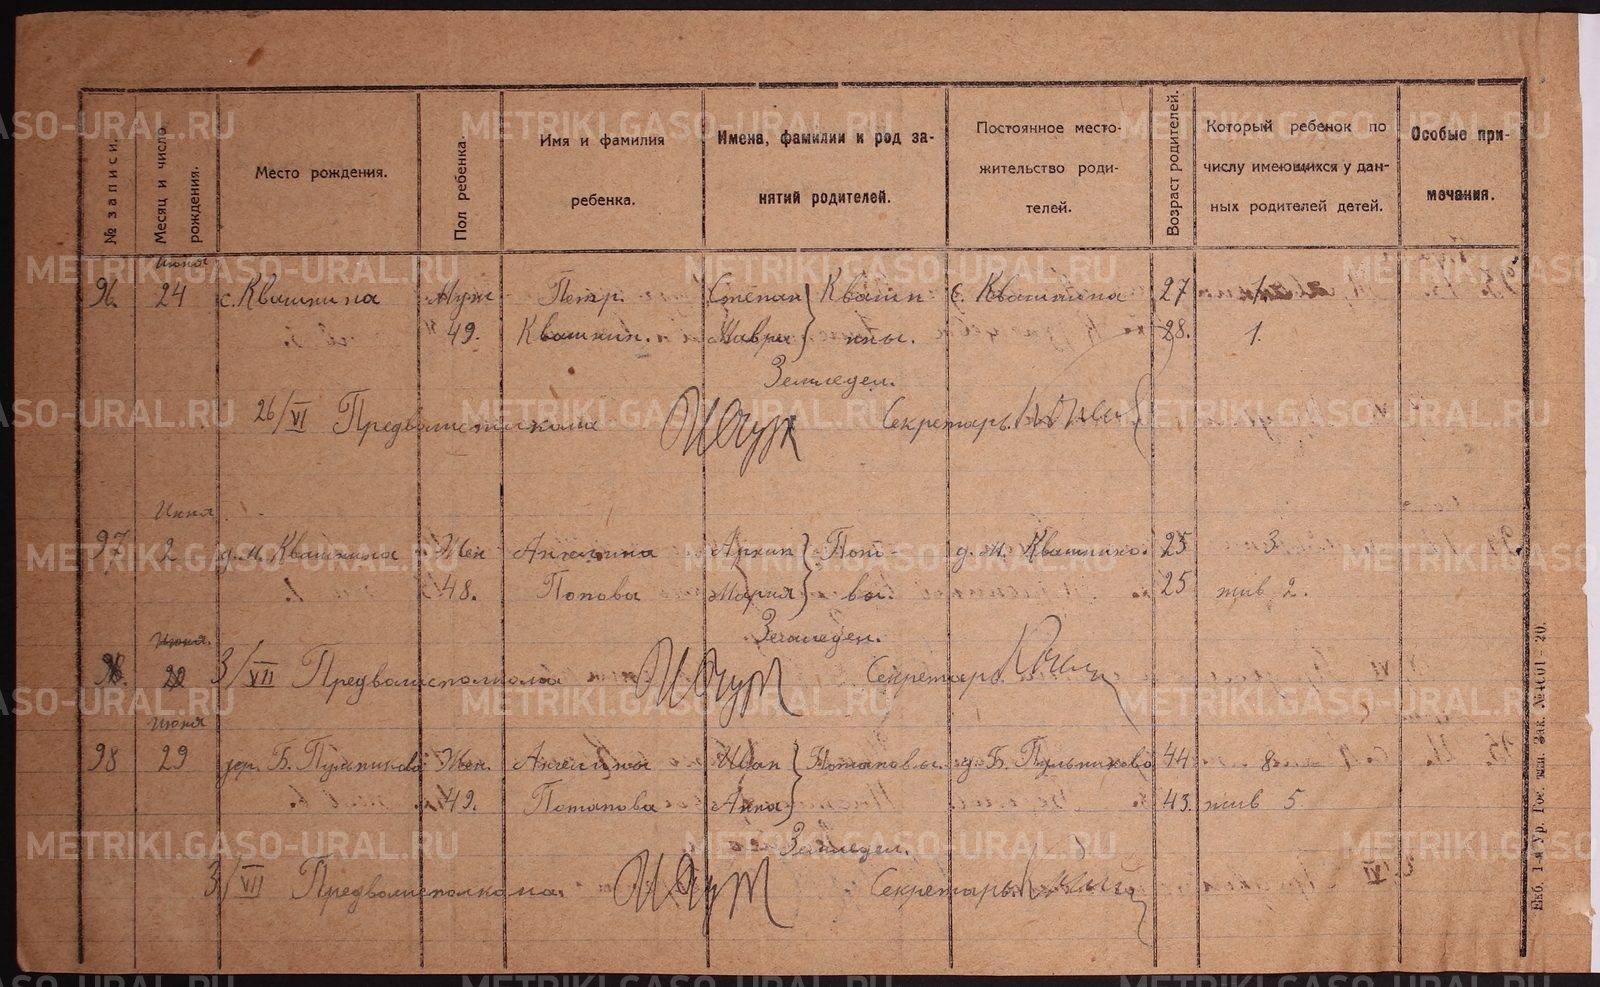 № записи.
Месяц и число рождения.
Место рождения.
Пол ребенка.
Имя и фамилия
ребенка.
Имена, фамилии и род за-
нятий родителей.
Постоянное место-
жительство роди-
телей.
Возраст родителей.
Который ребенок по
числу имеющихся у дан-
ных родителей детей.
Особые при-
мечания.
Июня
96. 24 с. Квашнина Муж Петр. Степан Квашн с. Квашнина 27 1
49. Квашнин. Мавра ины. 28. 1.
Земледел.
26/VI Предволисполкома Секретарь
Июня
97 2 д. М. Квашнина Жен Ангелина Архип Поп- д. М. Квашнино. 25 3
48. Попова Мария вы. 25 жив 2.
Земледел.
Июня.
98. 29 3/VII Предволисполкома Секретарь
Июня
98 29 дер. Б. Пульниково Жен. Ангелина Иван Потаповы. д. Б. Пульниково 44 8
49. Потапова Анна 43. жив 5.
Земледел.
3/VII Предволисполкома. Секретарь
Екб. 1-я Ур. Гос. тип. Зак. № 4601-20.
METRIKI.GASO-URAL.RU